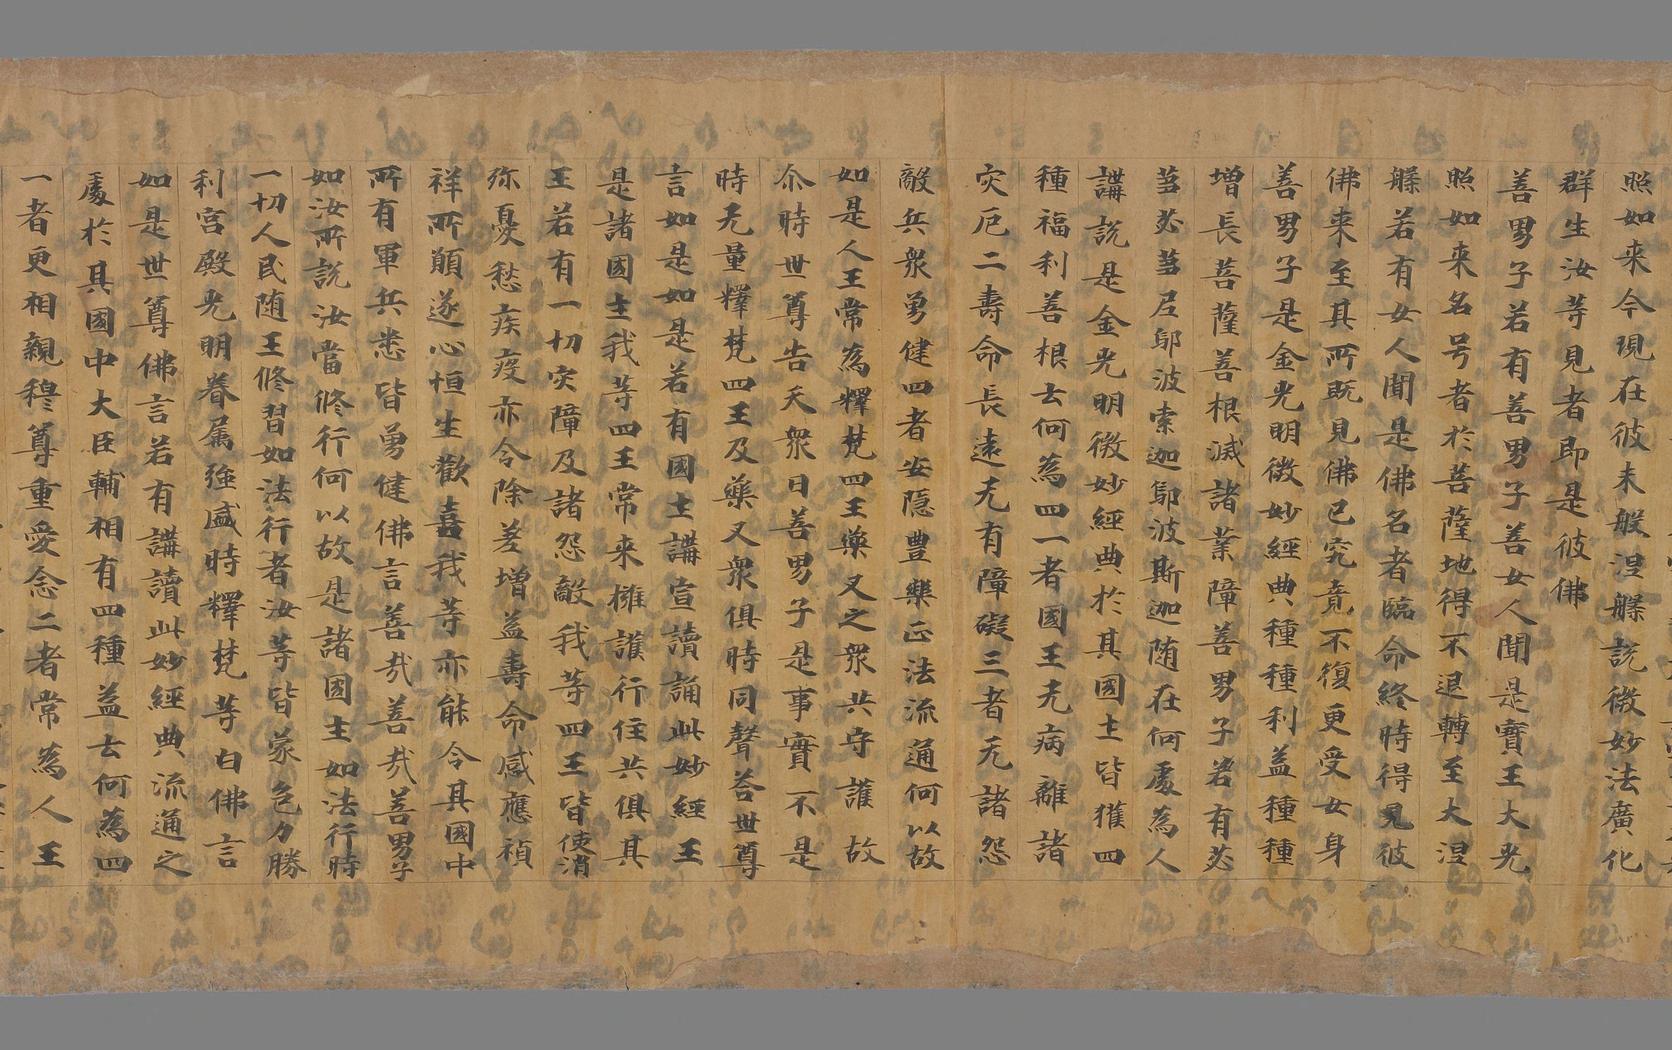 照如来今現在彼未般涅槃説微妙法廣化
群生汝等見者即是彼佛
善男子若有善男子善女人聞是寶王大光
照如来名号者於菩薩地得不退轉至大涅
槃若有女人聞是佛名者臨命終時得見彼
佛来至其所既見佛已究竟不復更受女身
善男子是金光明微妙經典種種利益種種
增長菩薩善根滅諸業障善男子若有苾
芻苾芻尼鄔波索迦鄔波斯迦随在何處為人
講説是金光明微妙經典於其國土皆獲四
種福利善根云何為四一者國王无病離諸
灾厄二壽命長遠无有障礙三者无諸怨
敵兵衆勇健四者安隠豊樂正法流通何以故
如是人王常為釋梵四王藥叉之衆共守護故
尒時世尊告天衆曰善男子是事實不是
時无量釋梵四王及藥叉衆俱時同聲荅世尊
言如是如是若有國土講宣讀誦此妙經王
是諸國主我等四王常来擁護行住共俱其
王若有一切灾障及諸怨敵我等四王皆使消
殄憂愁疾疫亦令除差增益壽命感應禎
祥所願遂心恒生歡喜我等亦能令其國中
所有軍兵悉皆勇健佛言善哉善哉善男子
如汝所説汝當修行何以故是諸國主如法行時
一切人民随王修習如法行者汝等皆蒙色力勝
利宮殿光明眷属強盛時釋梵等白佛言
如是世尊佛言若有講讀此妙經典流通之
處於其國中大臣輔相有四種益云何為四
一者更相親穆尊重愛念二者常為人王